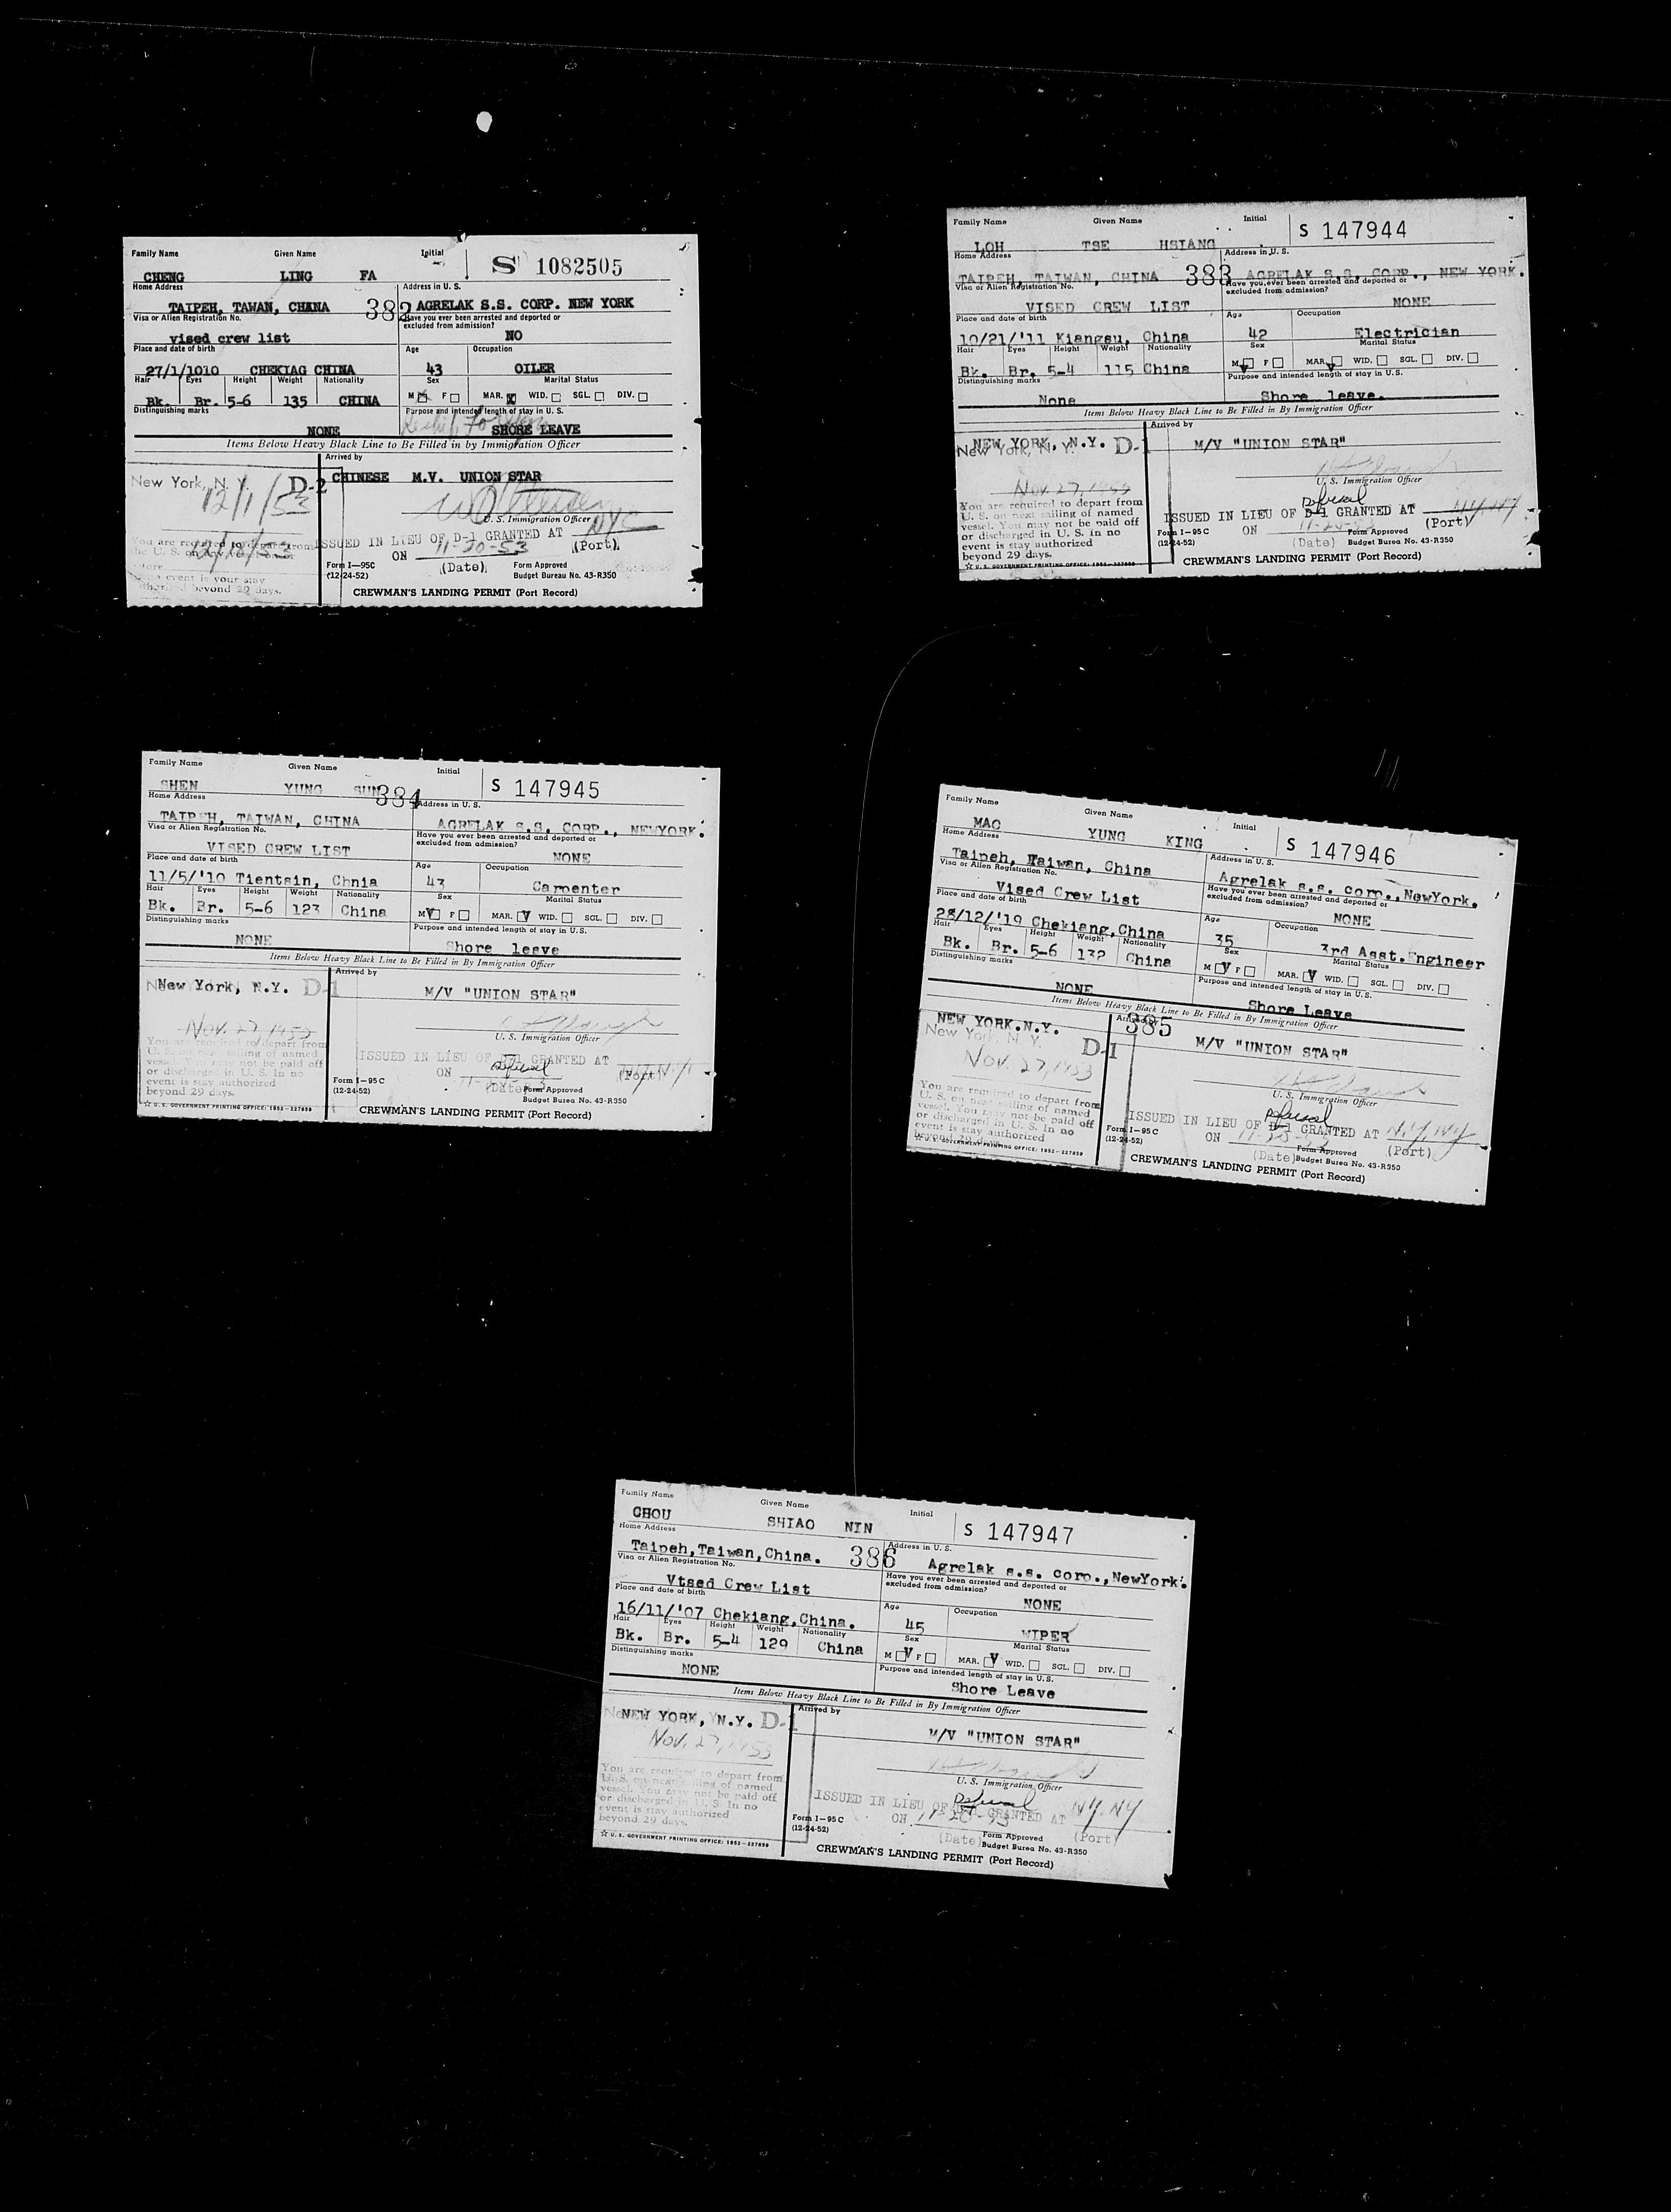 Family Name Given Name Initial S 1082505
CHENG LING FA
Home Address Address in U. S.
TAIPEH, TAWAN, CHANA 382 AGRELAK S.S. CORP. NEW YORK
Visa or Alien Registration No. Have you ever been arrested and deported or
excluded from admission?
vised crew list NO
Place and date of birth Age Occupation
27/1/1010 CHEKIAG CHINA 43 OILER
Hair Eyes Height Weight Nationality Sex Marital Status
Bk. Br. 5-6 135 CHINA M F MAR. X WID. SGL. DIV.
Distinguishing marks Purpose and intended length of stay in U. S.
NONE SHORE LEAVE
Items Below Heavy Black Line to Be Filled in by Immigration Officer
Arrived by
New York, N. Y. D-2 CHINESE M.V. UNION STAR
12/1/53
U. S. Immigration Officer
ISSUED IN LIEU OF D-1 GRANTED AT NYC
ON 11-20-53 (Port)
Form I—95C (Date) Form Approved
(12-24-52) Budget Bureau No. 43-R350
CREWMAN'S LANDING PERMIT (Port Record)
Family Name Given Name Initial S 147944
LOH TSE HSIANG
Home Address Address in U. S.
TAIPEH, TAIWAN, CHINA 383 AGRELAK S.S. CORP., NEW YORK.
Visa or Alien Registration No. Have you ever been arrested and deported or
excluded from admission?
VISED CREW LIST NONE
Place and date of birth Age Occupation
10/21/'11 Kiangsu, China 42 Electrician
Hair Eyes Height Weight Nationality Sex Marital Status
Bk. Br. 5-4 115 China M F MAR. WID. SGL. DIV.
Distinguishing marks Purpose and intended length of stay in U.S.
None Shore leave.
Items Below Heavy Black Line to Be Filled in By Immigration Officer
Arrived by
NEW YORK, N.Y. D-1 M/V "UNION STAR"
New York, N. Y.
Nov. 27, 1953
U. S. Immigration Officer
You are required to depart from
U. S. on next sailing of named
vessel. You may not be paid off
or discharged in U. S. In no
event is stay authorized
beyond 29 days.
Refusal
ISSUED IN LIEU OF D-1 GRANTED AT N.Y. NY
Form I—95 C ON (Port)
(12-24-52) (Date) Form Approved
Budget Burea No. 43-R350
☆ U. S. GOVERNMENT PRINTING OFFICE: 1952—227859
CREWMAN'S LANDING PERMIT (Port Record)
Family Name Given Name Initial S 147945
SHEN YUNG SUN 384
Home Address Address in U. S.
TAIPEH, TAIWAN, CHINA AGRELAK S.S. CORP., NEWYORK.
Visa or Alien Registration No. Have you ever been arrested and deported or
excluded from admission?
VISED CREW LIST NONE
Place and date of birth Age Occupation
11/5/'10 Tientsin, Chnia 43 Carpenter
Hair Eyes Height Weight Nationality Sex Marital Status
Bk. Br. 5-6 123 China M V F MAR. V WID. SGL. DIV.
Distinguishing marks Purpose and intended length of stay in U.S.
NONE Shore leave
Items Below Heavy Black Line to Be Filled in By Immigration Officer
Arrived by
New York, N.Y. D-1 M/V "UNION STAR"
Nov. 27 1953
U. S. Immigration Officer
You are required to depart from
U. S. on next sailing of named
vessel. You may not be paid off
or discharged in U. S. In no
event is stay authorized
beyond 29 days.
ISSUED IN LIEU OF D-1 GRANTED AT
Refusal
ON (Port)
Form I—95 C (Date) Form Approved
(12-24-52) Budget Burea No. 43-R350
☆ U. S. GOVERNMENT PRINTING OFFICE: 1952—227859
CREWMAN'S LANDING PERMIT (Port Record)
Family Name Given Name Initial S 147946
MAO YUNG KING
Home Address Address in U. S.
Taipeh, Taiwan, China Agrelak s.s. corp., NewYork.
Visa or Alien Registration No. Have you ever been arrested and deported or
excluded from admission?
Vised Crew List NONE
Place and date of birth Age Occupation
28/12/'19 Chekiang,China 35 3rd Asst.Engineer
Hair Eyes Height Weight Nationality Sex Marital Status
Bk. Br. 5-6 132 China M V F MAR. V WID. SGL. DIV.
Distinguishing marks Purpose and intended length of stay in U.S.
NONE Shore Leave
Items Below Heavy Black Line to Be Filled in By Immigration Officer
Arrived by 385
NEW YORK.N.Y. M/V "UNION STAR"
New York, N. Y. D-1
Nov. 27, 1953
U. S. Immigration Officer
You are required to depart from
U. S. on next sailing of named
vessel. You may not be paid off
or discharged in U. S. In no
event is stay authorized
beyond 29 days.
Refusal
ISSUED IN LIEU OF D-1 GRANTED AT N.Y. NY
Form I—95 C ON (Port)
(12-24-52) (Date) Form Approved
Budget Burea No. 43-R350
☆ U. S. GOVERNMENT PRINTING OFFICE: 1952—227859
CREWMAN'S LANDING PERMIT (Port Record)
Family Name Given Name Initial S 147947
CHOU SHIAO NIN
Home Address Address in U. S.
Taipeh,Taiwan,China. 386 Agrelak s.s. corp., NewYork.
Visa or Alien Registration No. Have you ever been arrested and deported or
excluded from admission?
Vtsed Crew List NONE
Place and date of birth Age Occupation
16/11/'07 Chekiang,China. 45 WIPER
Hair Eyes Height Weight Nationality Sex Marital Status
Bk. Br. 5-4 129 China M V F MAR. V WID. SGL. DIV.
Distinguishing marks Purpose and intended length of stay in U.S.
NONE Shore Leave
Items Below Heavy Black Line to Be Filled in By Immigration Officer
Arrived by
NEW YORK, N.Y. D-1 M/V "UNION STAR"
Nov. 27, 1953
U. S. Immigration Officer
You are required to depart from
U. S. on next sailing of named
vessel. You may not be paid off
or discharged in U. S. In no
event is stay authorized
beyond 29 days.
Refusal
ISSUED IN LIEU OF D-1 GRANTED AT N.Y. NY
Form I—95 C ON (Port)
(12-24-52) (Date) Form Approved
Budget Burea No. 43-R350
☆ U. S. GOVERNMENT PRINTING OFFICE: 1952—227859
CREWMAN'S LANDING PERMIT (Port Record)